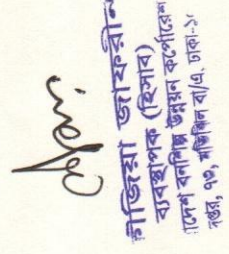 জিয়া জাফরীন
ব্যবস্থাপক (হিসাব)
াদেশ বনশিল্প উন্নয়ন কর্পোরেশ
৭৩, মতিঝিল বা/এ, ঢাকা-১